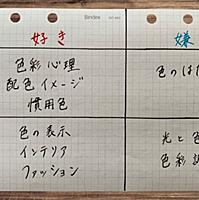 Bindex
好き
嫌
色彩心理
配色イメージ
慣用色
色のは
色の表示
インテリア
ファッション
光と色
色彩